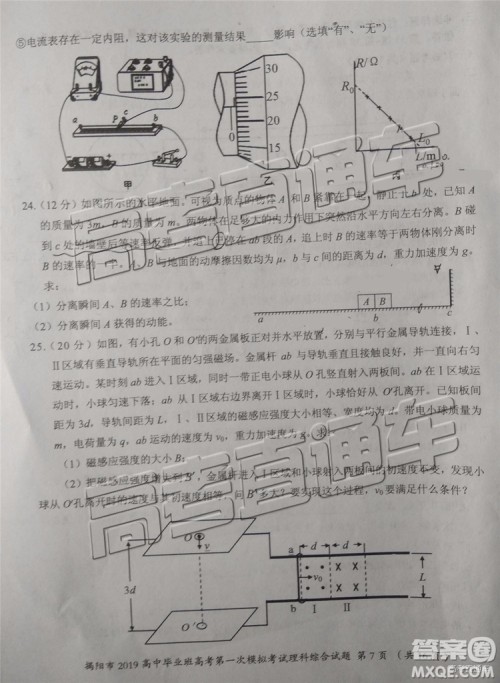 ⑤电流表存在一定内阻,这对该实验的测量结果_____影响(选填“有”、“无”)
R/Ω
R₀
L₀
L/m
30
25
20
15
10
a
P
b
甲
乙
24.(12分)如图所示的水平地面,可视为质点的物体A和B紧靠在一起,静止于b处,已知A
的质量为3m,B的质量为m。两物体在足够大的内力作用下突然沿水平方向左右分离。B碰
到c处的墙壁后等速率反弹,并追上已停在ab段的A,追上时B的速率等于两物体刚分离时
B的速率的一半。A、B与地面的动摩擦因数均为μ,b与c间的距离为d,重力加速度为g。
求:
(1)分离瞬间A、B的速率之比;
(2)分离瞬间A获得的动能。
A B
a b c
25.(20分)如图,有小孔O和O′的两金属板正对并水平放置,分别与平行金属导轨连接,Ⅰ、
Ⅱ区域有垂直导轨所在平面的匀强磁场。金属杆ab与导轨垂直且接触良好,并一直向右匀
速运动。某时刻ab进入Ⅰ区域,同时一带正电小球从O孔竖直射入两板间。ab在Ⅰ区域运
动时,小球匀速下落;ab从Ⅰ区域右边离开Ⅰ区域时,小球恰好从O′孔离开。已知板间距为
3d,导轨间距为L,Ⅰ、Ⅱ区域的磁感应强度大小相等、宽度均为d。带电小球质量为
m,电荷量为q,ab运动的速度为v₀,重力加速度为g,求:
(1)磁感应强度的大小B;
(2)把磁感应强度减小到B′,金属杆ab进入Ⅰ区域和小球射入两板间的初速度不变,发现小
球从O′孔离开时的速度与其初速度相等,问B′多大?要实现这个过程,v₀要满足什么条件?
3d
O
v
O′
a
b
d
d
v₀
L
Ⅰ Ⅱ
揭阳市2019高中毕业班高考第一次模拟考试理科综合试题 第7页 (共
高考直通车
高考直通车
高考直通车